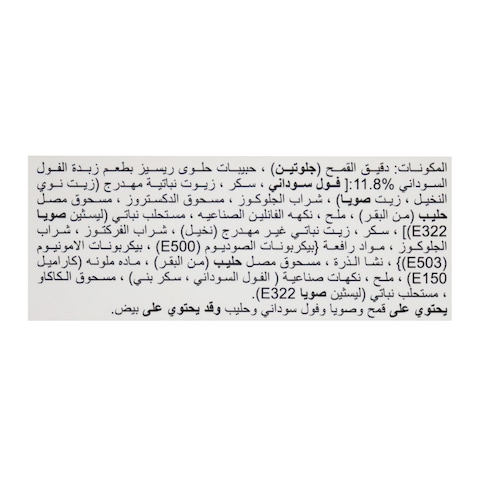 المكونات: دقيق القمح (جلوتين) ، حبيبات حلوى ريسيز بطعم زبدة الفول
السوداني 11.8%:[ فول سوداني ، سكر ، زيوت نباتية مهدرج (زيت نوي
النخيل ، زيت صويا) ، شراب الجلوكوز ، مسحوق الدكستروز ، مسحوق مصل
حليب (من البقر) ، ملح ، نكهه الفانلين الصناعيه ، مستحلب نباتي (ليسثين صويا
E322)] ، سكر ، زيت نباتي غير مهدرج (نخيل) ، شراب الفركتوز ، شراب
الجلوكوز ، مواد رافعة {بيكربونات الصوديوم (E500) ، بيكربونات الامونيوم
(E503)} ، نشا الذرة ، مسحوق مصل حليب (من البقر) ، ماده ملونه (كاراميل
E150) ، ملح ، نكهات صناعية ( الفول السوداني ، سكر بني) ، مسحوق الكاكاو
، مستحلب نباتي (ليسثين صويا E322).
يحتوي على قمح وصويا وفول سوداني وحليب وقد يحتوي على بيض.